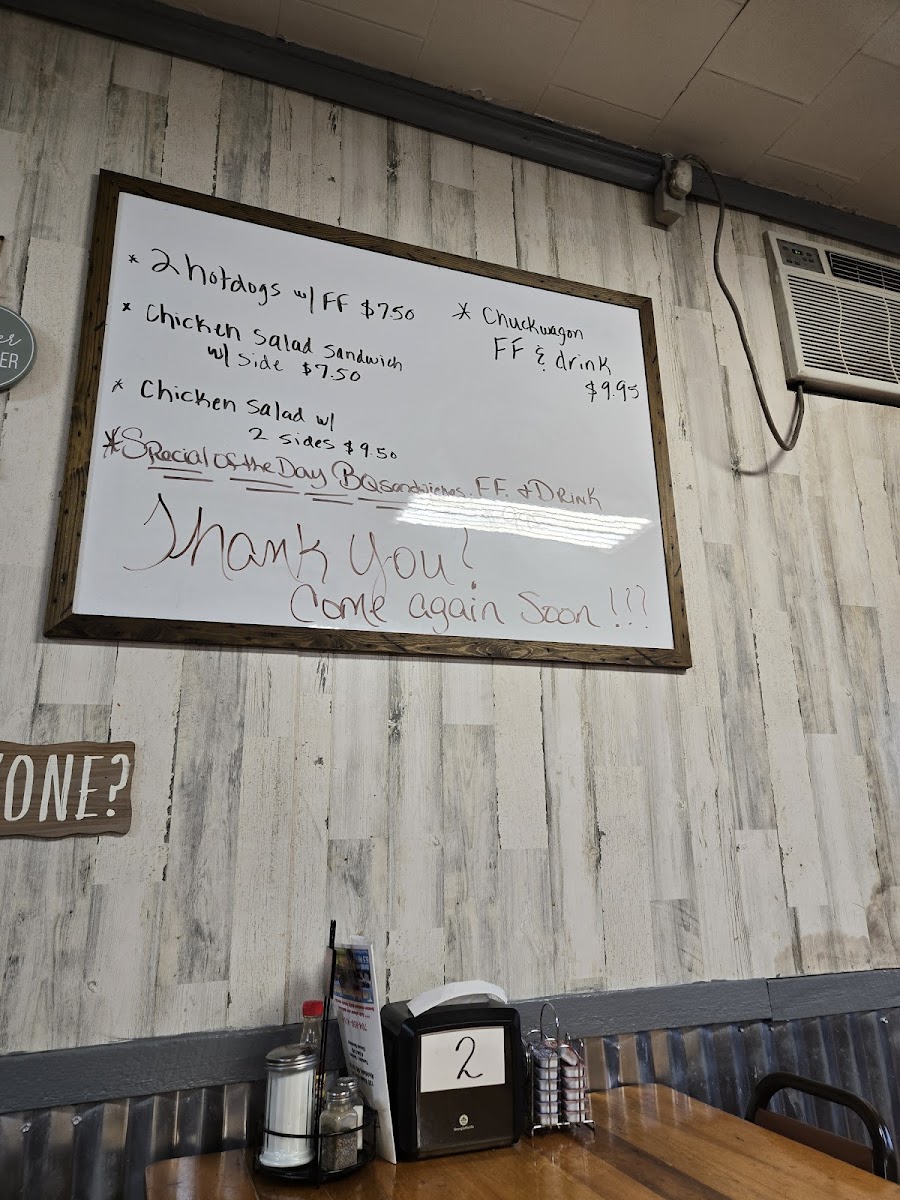 * 2 hotdogs w/ FF $7.50
* Chicken Salad Sandwich
w/ side $7.50
* Chicken Salad w/
2 sides $9.50
* Chuckwagon
FF & drink
$9.95
*Special of the Day BQ Sandwiches. FF. & Drink
Thank You!
Come again Soon!!!
ER
ONE?
2